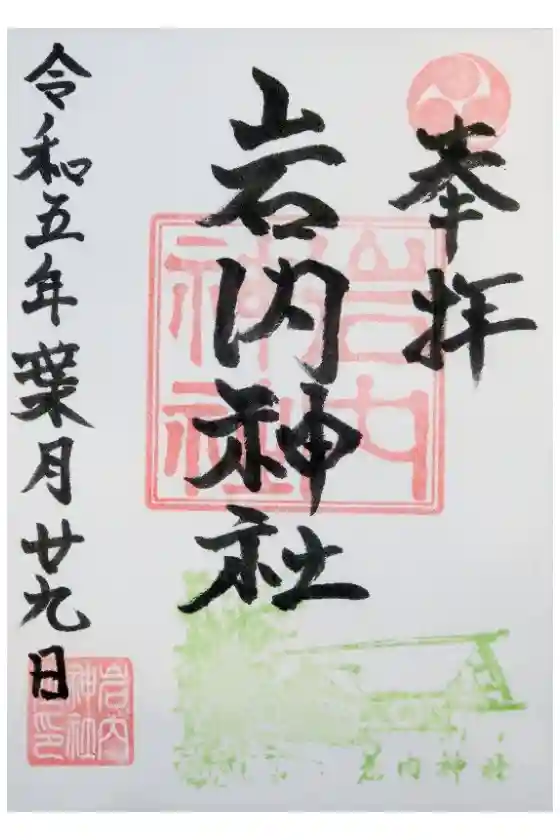 奉拝
岩内神社
岩内神社
令和五年葉月廿九日
岩内神社之印
岩内神社